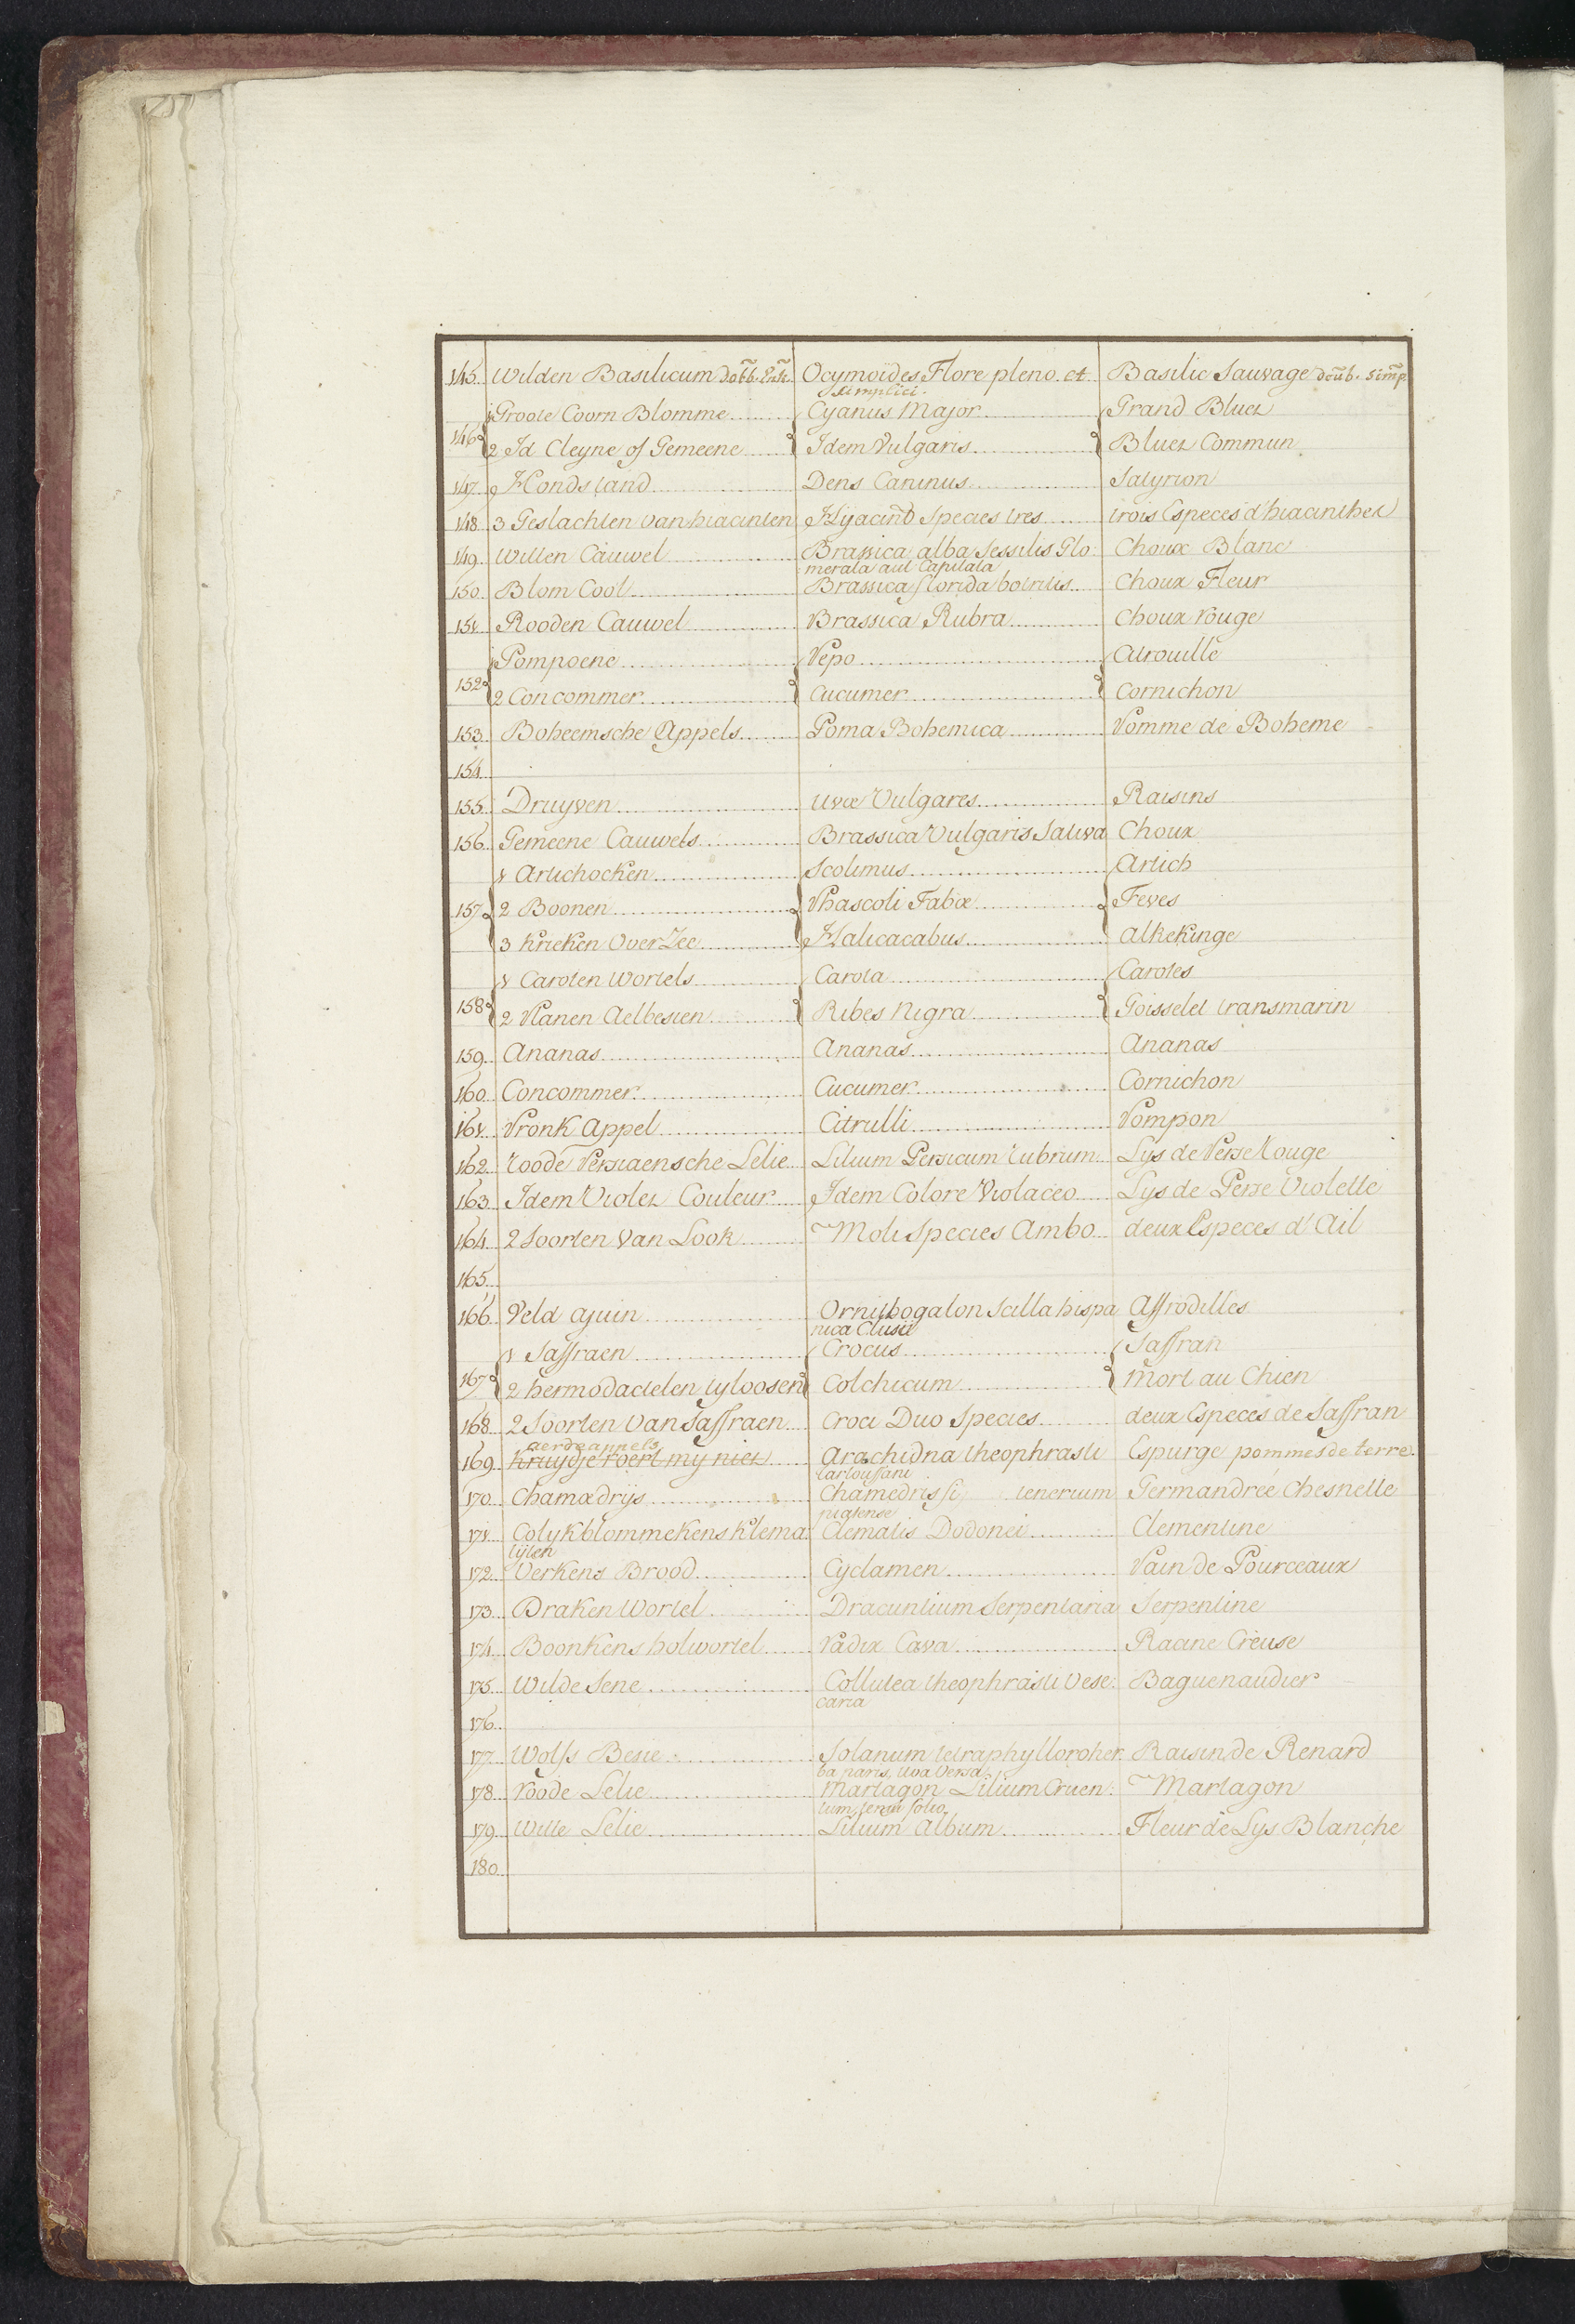 145. Wilden Basilicum dobb. Enk. Ocymoides Flore pleno et Basilic Sauvage doub. simp
simplici.
1 Groote Coorn Blomme Cyanus Major Grand Bluez
146 2 Id Cleyne of Gemeene Idem Vulgaris Bluez Commun
147. Hondstand Dens Caninus Satyrion
148. 3 Geslachten van hiacinten Hyacint Species tres trois Especes d'hiacinthes
149. Witten Cauwel Brassica alba Sessilis Glo: Choux Blanc
merata aut Capitata
150. Blom Cool Brassica florida botritis Choux Fleur
151. Rooden Cauwel Brassica Rubra Choux rouge
1 Pompoene Pepo Citrouille
152 2 Concommer Cucumer Cornichon
153. Boheemsche Appels Poma Bohemica Pomme de Boheme
154.
155. Druyven Uvæ Vulgares Raisins
156. Gemeene Cauwels Brassica Vulgaris Sativa Choux
1 Artichocken Scolimus Artich
157 2 Boonen Phascoli Fabæ Feves
3 Krieken Over Zee Halicacabus Alkekinge
1 Caroten Wortels Carota Carotes
158 2 Planen Aelbesien Ribes Nigra Goisselet transmarin
159. Ananas Ananas Ananas
160. Concommer Cucumer Cornichon
161. Pronk Appel Citrulli Pompon
162. roode Persiaensche Lelie Lilium Persicum rubrum Lys de Perse rouge
163. Idem Violez Couleur Idem Colore Violaceo Lys de Perse Violette
164. 2 Soorten van Look Moli Species Ambo deux Especes d'Ail
165.
166. Veld ajuin Ornithogalon Scilla hispa Affrodilles
nica Clusii
1 Saffraen Crocus Saffran
167 2 hermodactelen tyloosen Colchicum Mort au Chien
168. 2 Soorten van Saffraen Croci Duo Species deux Especes de Saffran
aerdeappels
169. Kruydje roert my niet Arachidna theophrasti Espurge pommes de terre.
tartouffani
170. Chamædrys Chamedris fi tenerium Germandrée Chesnette
pratense
171. Colykblommekens Klema: Clematis Dodonei Clementine
tijten
172. Verkens Brood Cyclamen Pain de Pourceaux
173. Draken Wortel Dracuntium Serpentaria Serpentine
174. Boonkens holwortel radix Cava Racine Creuse
175. Wilde Sene Collutea theophrasti Vese: Baguenaudier
caria
176.
177. Wolfs Besie Solanum tetraphylloroher. Raisin de Renard
ba paris, Uva Versa
178. roode Lelie Martagon Lilium Cruen: Martagon
tum, tenui folio
179. Witte Lelie Lilium Album Fleur de Lys Blanche
180.